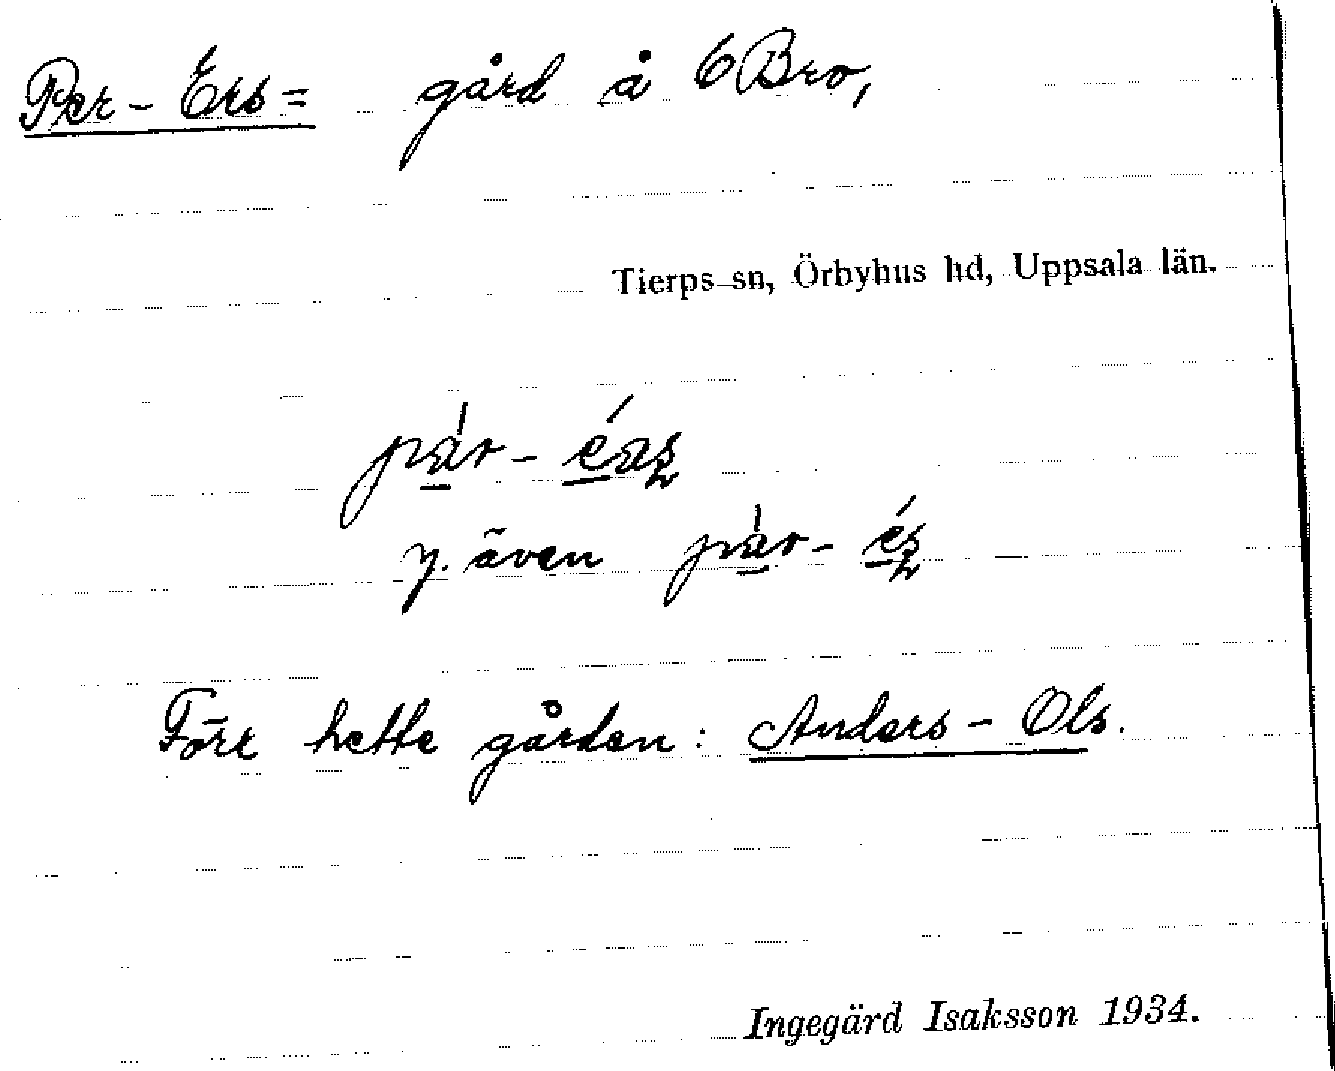 Per-Ers= gård å 6 Bro,
Tierps sn, Örbyhus hd, Uppsala län.
y. även
Förr hette gården: Anders-Ols.
Ingegärd Isaksson 1934.